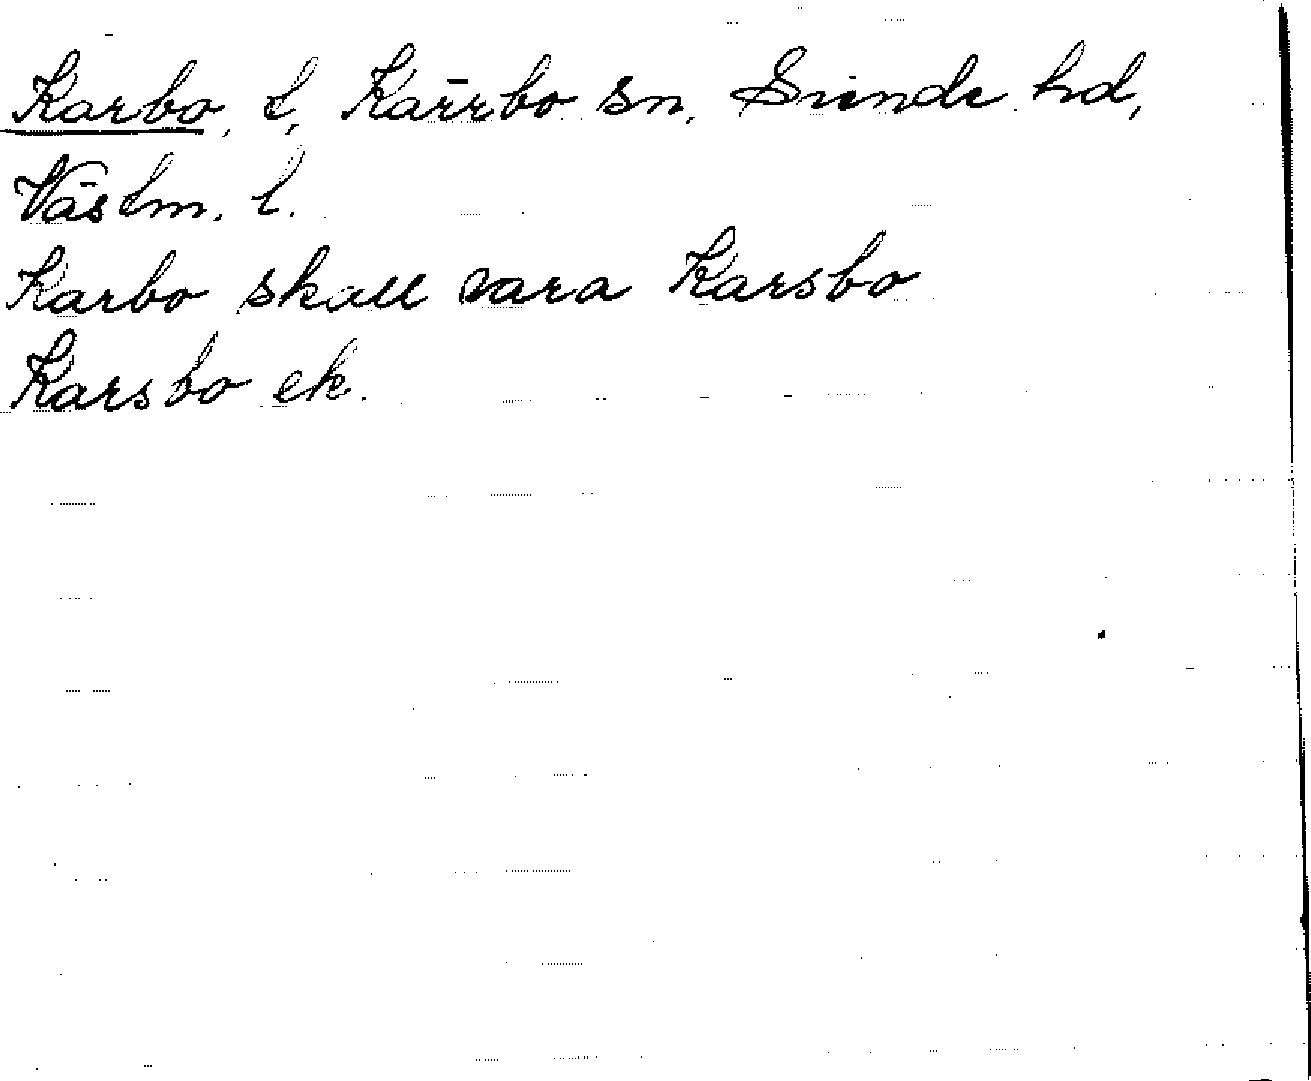 Karbo, t, Kärrbo sn, Siende hd,
Västm. l.
Karbo skall vara Karsbo
Karsbo ek.